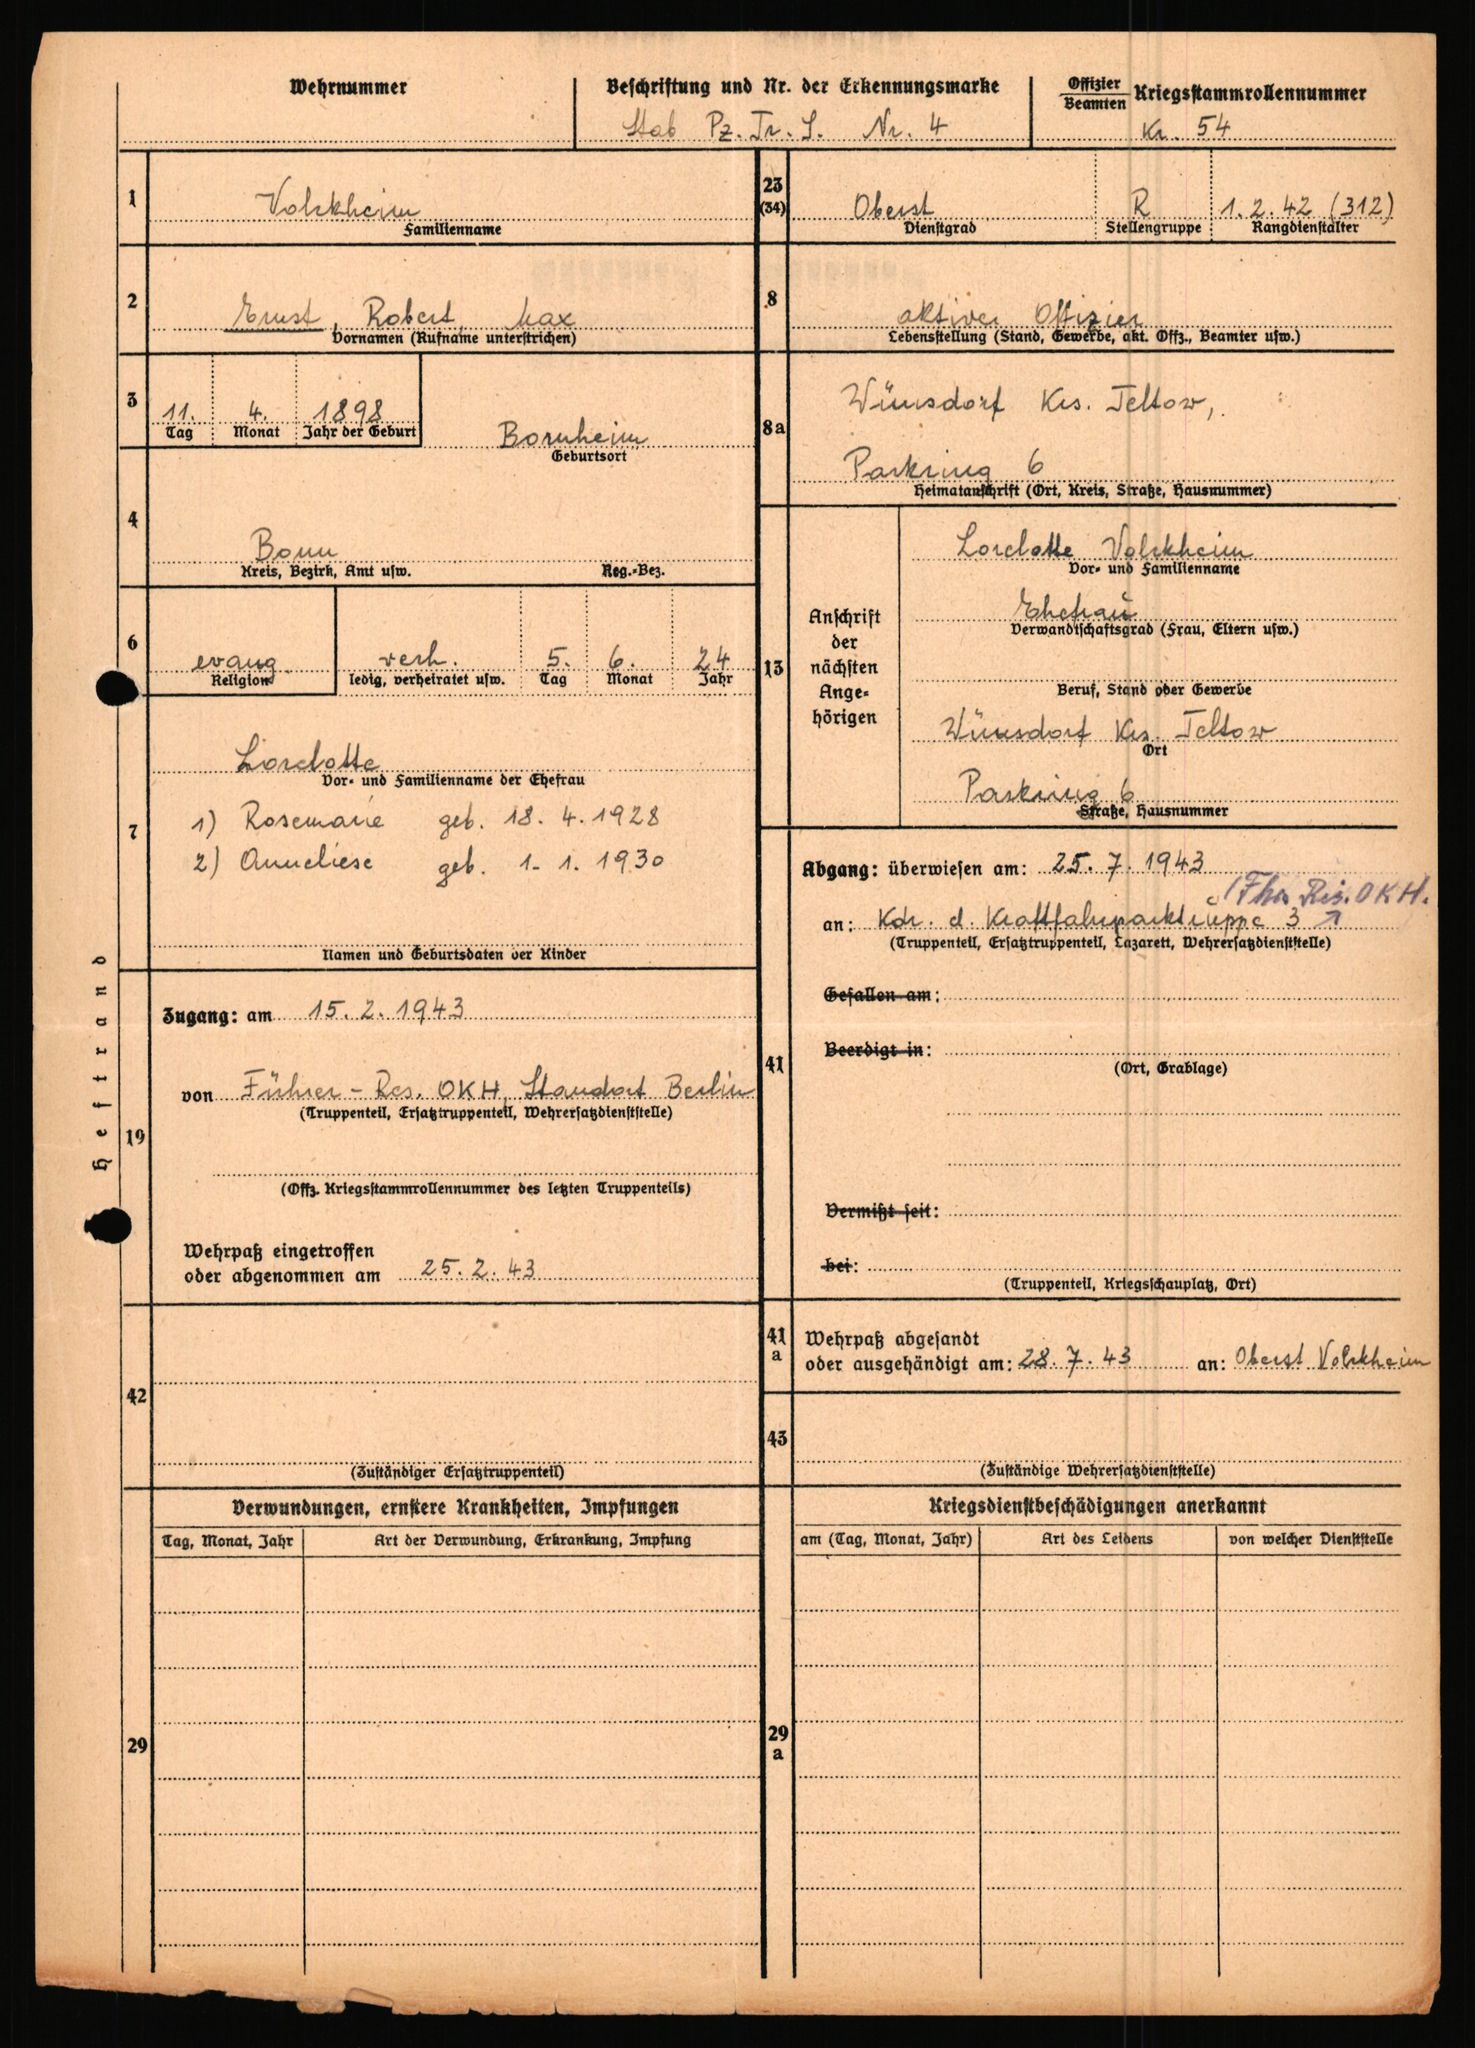 Wehrnummer
Beschriftung und Nr. der Erkennungsmarke
Stab Pz. Tr. S. Nr. 4
Offizier
Beamten
Kriegsstammrollennummer
Kr. 54
1
Volckheim
Familienname
2
Ernst, Robert, Max
Vornamen (Rufname unterstrichen)
3
11. 4. 1898
Tag Monat Jahr der Geburt
Bornheim
Geburtsort
4
Bonn
Kreis, Bezirk, Amt usw. Reg.-Bez.
6
evang. verh. 5. 6. 24
Religion ledig, verheiratet usw. Tag Monat Jahr
7
Lorelotte
Vor- und Familienname der Ehefrau
1) Rosemarie geb. 18. 4. 1928
2) Anneliese geb. 1. 1. 1930
Namen und Geburtsdaten der Kinder
Heftrand
19
Zugang: am 15. 2. 1943
von Führer-Res. OKH, Standort Berlin
(Truppenteil, Ersatztruppenteil, Wehrersatzdienststelle)
(Offz. Kriegsstammrollennummer des letzten Truppenteils)
Wehrpaß eingetroffen
oder abgenommen am 25. 2. 43
42
(Zuständiger Ersatztruppenteil)
Verwundungen, ernstere Krankheiten, Impfungen
Tag, Monat, Jahr Art der Verwundung, Erkrankung, Impfung
29
23
(34)
Oberst R 1. 2. 42 (312)
Dienstgrad Stellengruppe Rangdienstalter
8
aktiver Offizier
Lebensstellung (Stand, Gewerbe, akt. Offz., Beamter usw.)
8a
Wünsdorf Krs. Teltow,
Parkring 6
Heimatanschrift (Ort, Kreis, Straße, Hausnummer)
13
Anschrift
der
nächsten
Ange-
hörigen
Lorelotte Volckheim
Vor- und Familienname
Ehefrau
Verwandtschaftsgrad (Frau, Eltern usw.)
Beruf, Stand oder Gewerbe
Wünsdorf Krs. Teltow
Ort
Parkring 6
Straße, Hausnummer
41
Abgang: überwiesen am: 25. 7. 1943
OKH.
an: Kdr. d. Kraftfahrparktruppe 3
(Truppenteil, Ersatztruppenteil, Lazarett, Wehrersatzdienststelle)
Gefallen am:
Beerdigt in:
(Ort, Grablage)
Vermißt seit:
bei:
(Truppenteil, Kriegsschauplatz, Ort)
41
a
Wehrpaß abgesandt
oder ausgehändigt am: 28. 7. 43 an: Oberst Volckheim
43
(Zuständige Wehrersatzdienststelle)
Kriegsdienstbeschädigungen anerkannt
am (Tag, Monat, Jahr) Art des Leidens von welcher Dienststelle
29
a